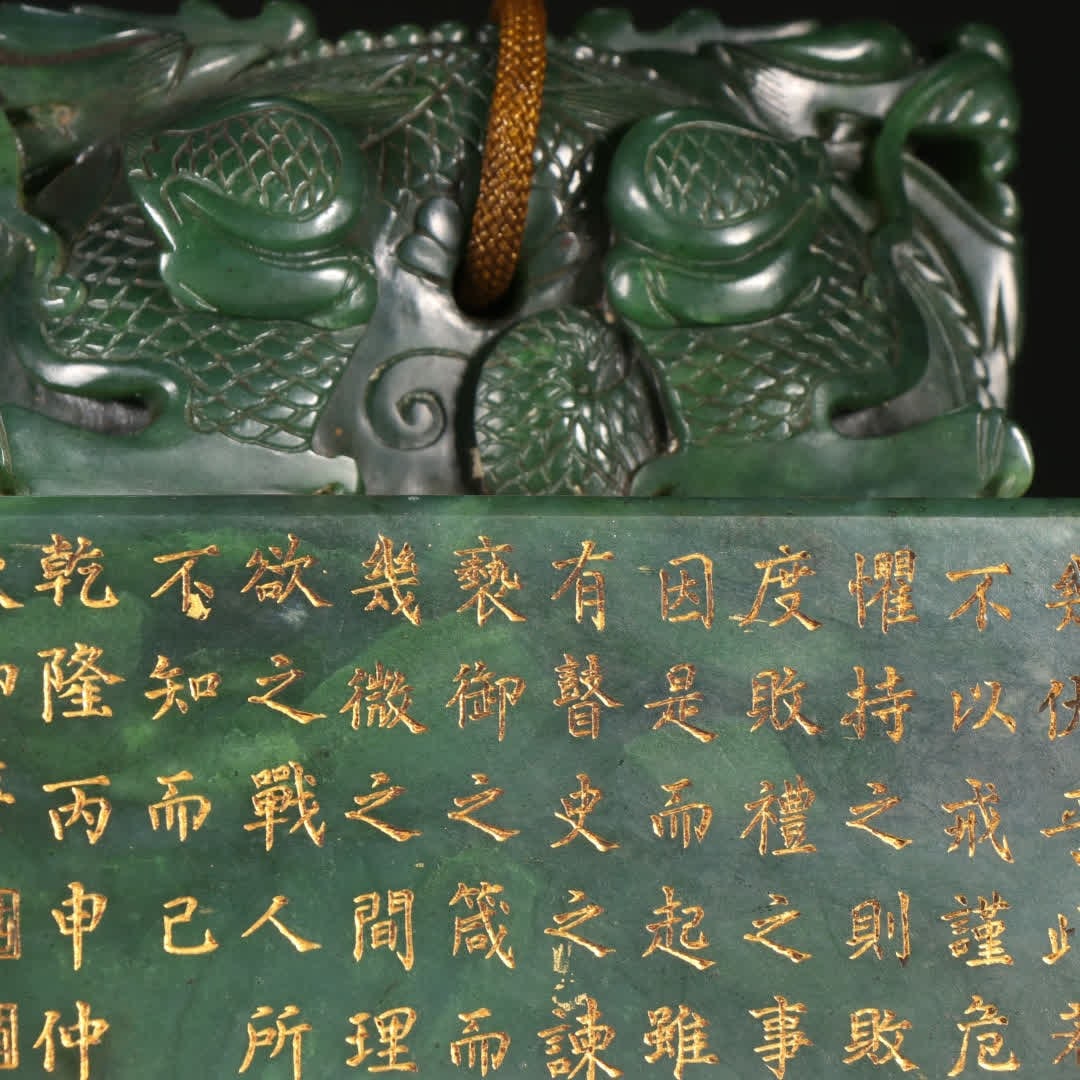 不以戒謹危
懼持之則敗
度敗禮之事
因是而起雖
有瞽史之諫
褻御之箴而
幾微之間理
欲之戰人所
不知而己
乾隆丙申仲